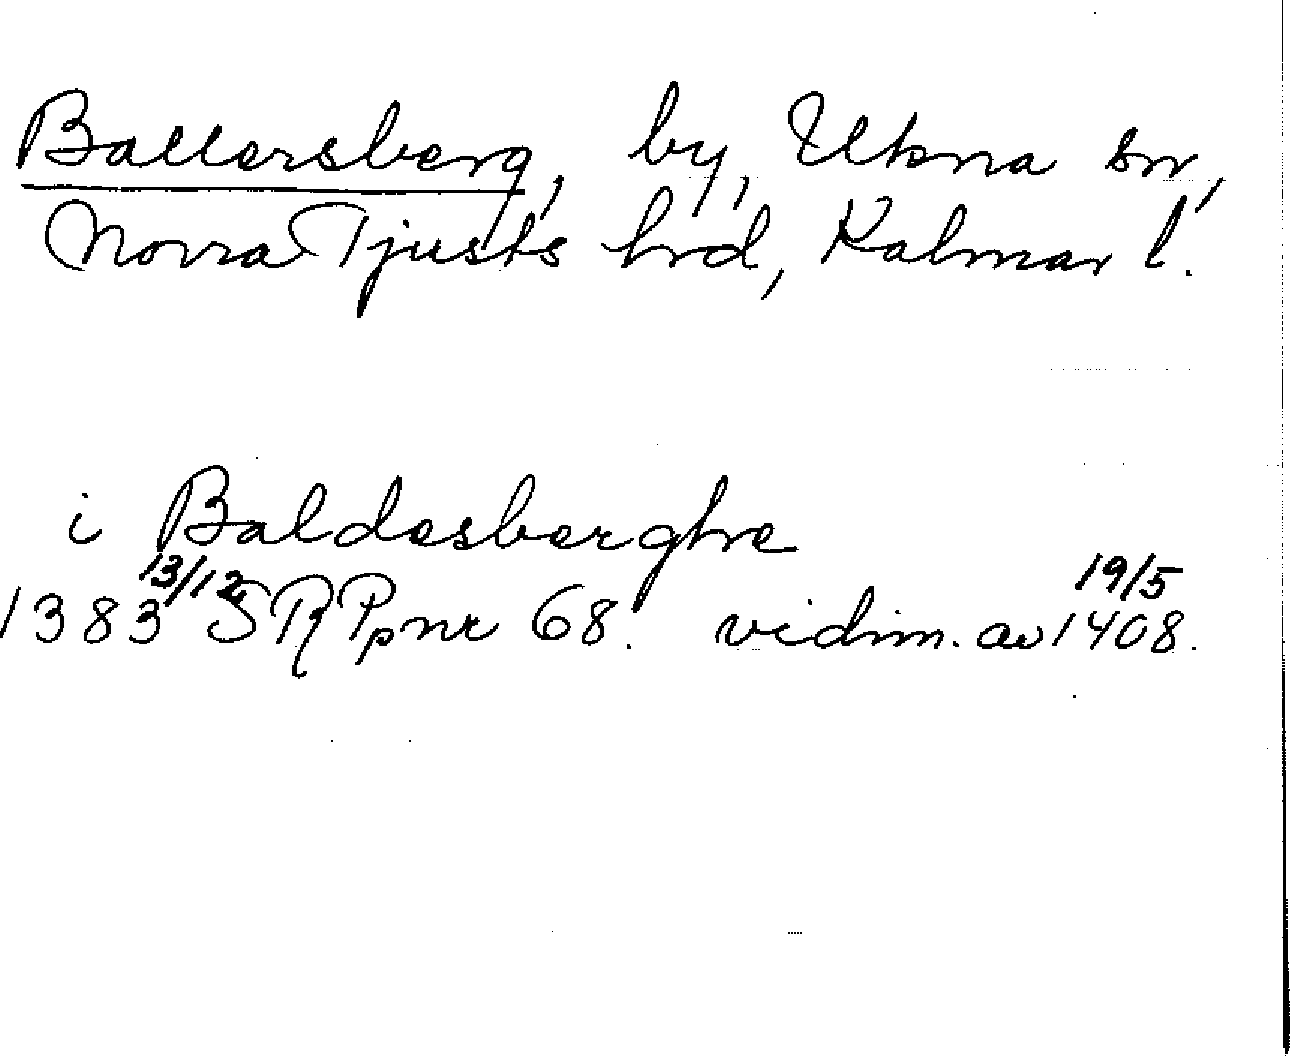 Ballersberg, by, Ukna sn,
Norra Tjusts hrd, Kalmar l.
i Baldesberghe
1383 13/12 SRPpnr 68. vidim. av 1408 19/5.